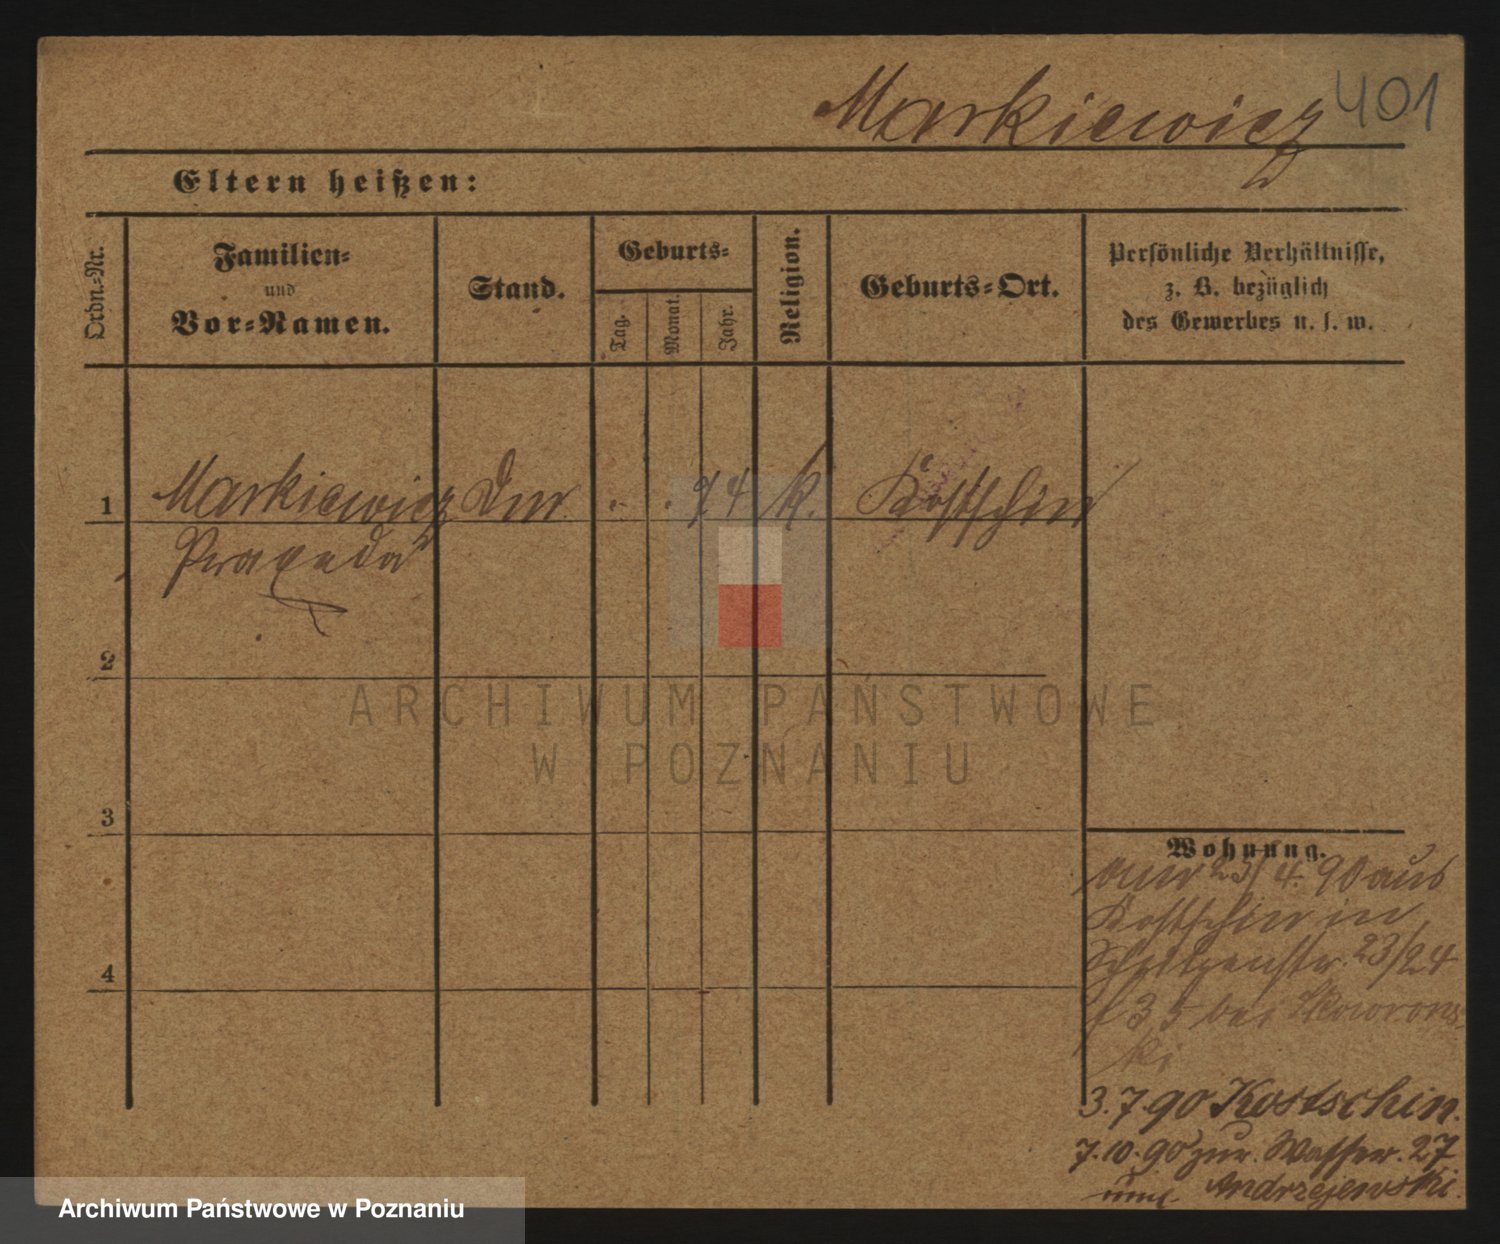 Markiewicz 401
Eltern heißen:
Ordn.-Nr.
Familien-
und
Vor-Namen.
Stand.
Geburts-
Tag.
Monat.
Jahr.
Religion.
Geburts-Ort.
Persönliche Verhältnisse,
z. B. bezüglich
des Gewerbes u. s. w.
1 Markiewicz 74 k. Kostschin
Praxeda
2
3
4
Wohnung.
4. 90 aus
Kostschin in
23/24
bei Skowrons-
ki
3.7.90 Kostschin.
7.10.90 zur. Wasser. 27
Andrzejewski.
ARCHIWUM PAŃSTWOWE
W POZNANIU
Archiwum Państwowe w Poznaniu